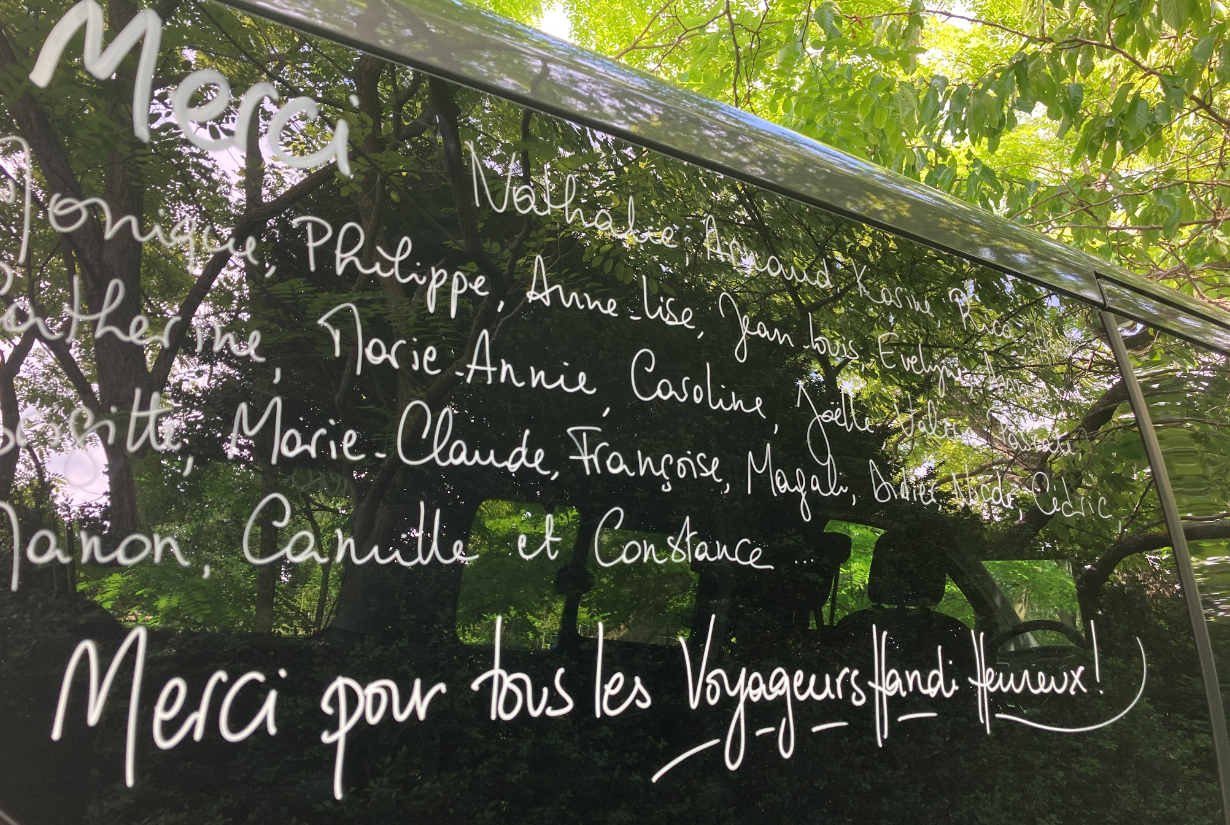 Merci
Nathalie, Arnaud Karine Rico
Monique, Philippe, Anne-Lise, Jean Louis, Evelyne
Catherine, Marie-Annie, Caroline, Joëlle Valérie
Brigitte, Marie-Claude, Françoise, Magali, Didier, Cédric,
Manon, Camille et Constance ...
Merci pour tous les Voyageurs Handi Heureux!